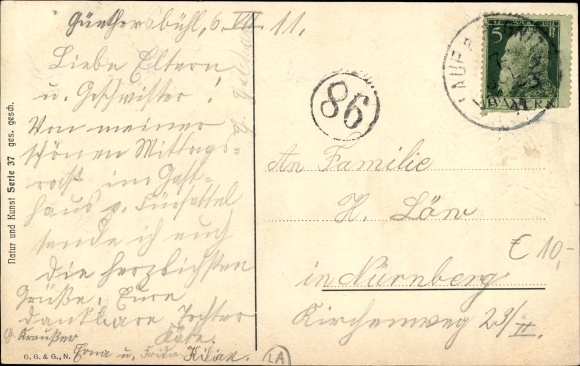 Günthersbühl, 6. VII. 11.
Liebe Eltern
u. Geschwister!
Von meiner
schönen Mittags-
rast im Gast-
haus v.
sende ich euch
die herzlichsten
Grüße. Eure
dankbare Tochter
Käte.
Kraußer
Erna u. Frida Kilian.
Natur und Kunst Serie 37 ges. gesch.
G. G. & G., N.
86
LAUF
5
BAYERN
An Familie
H. Löw
€ 10,-
in Nürnberg
Kirchenweg 23/II.
LA